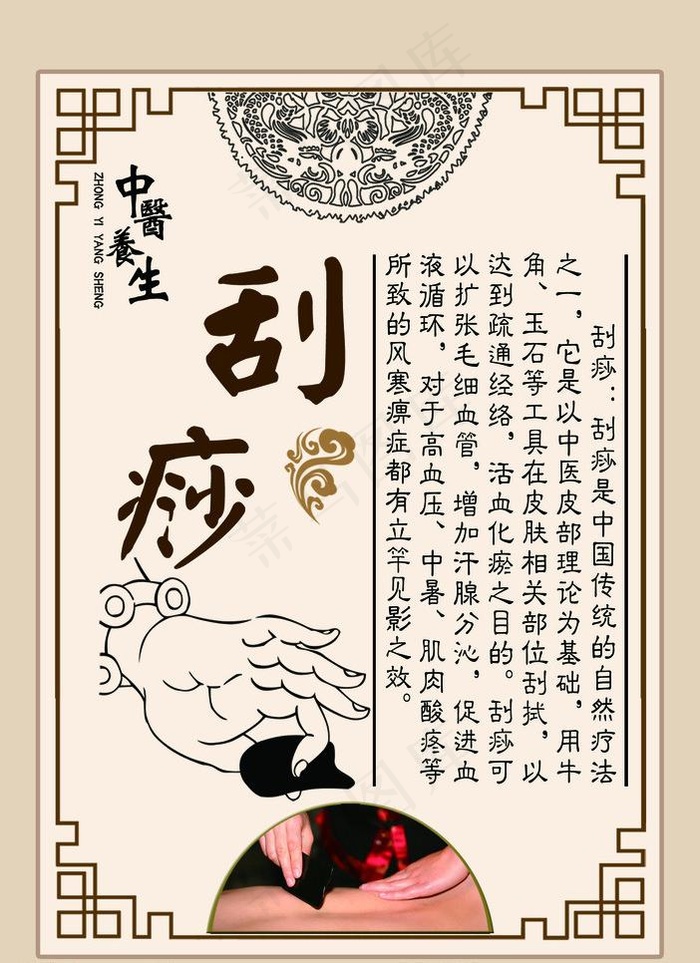 中醫養生
ZHONG YI YANG SHENG
刮痧
刮痧：刮痧是中国传统的自然疗法
之一，它是以中医皮部理论为基础，用牛
角、玉石等工具在皮肤相关部位刮拭，以
达到疏通经络，活血化瘀之目的。刮痧可
以扩张毛细血管，增加汗腺分沁，促进血
液循环，对于高血压、中暑、肌肉酸疼等
所致的风寒痹症都有立竿见影之效。